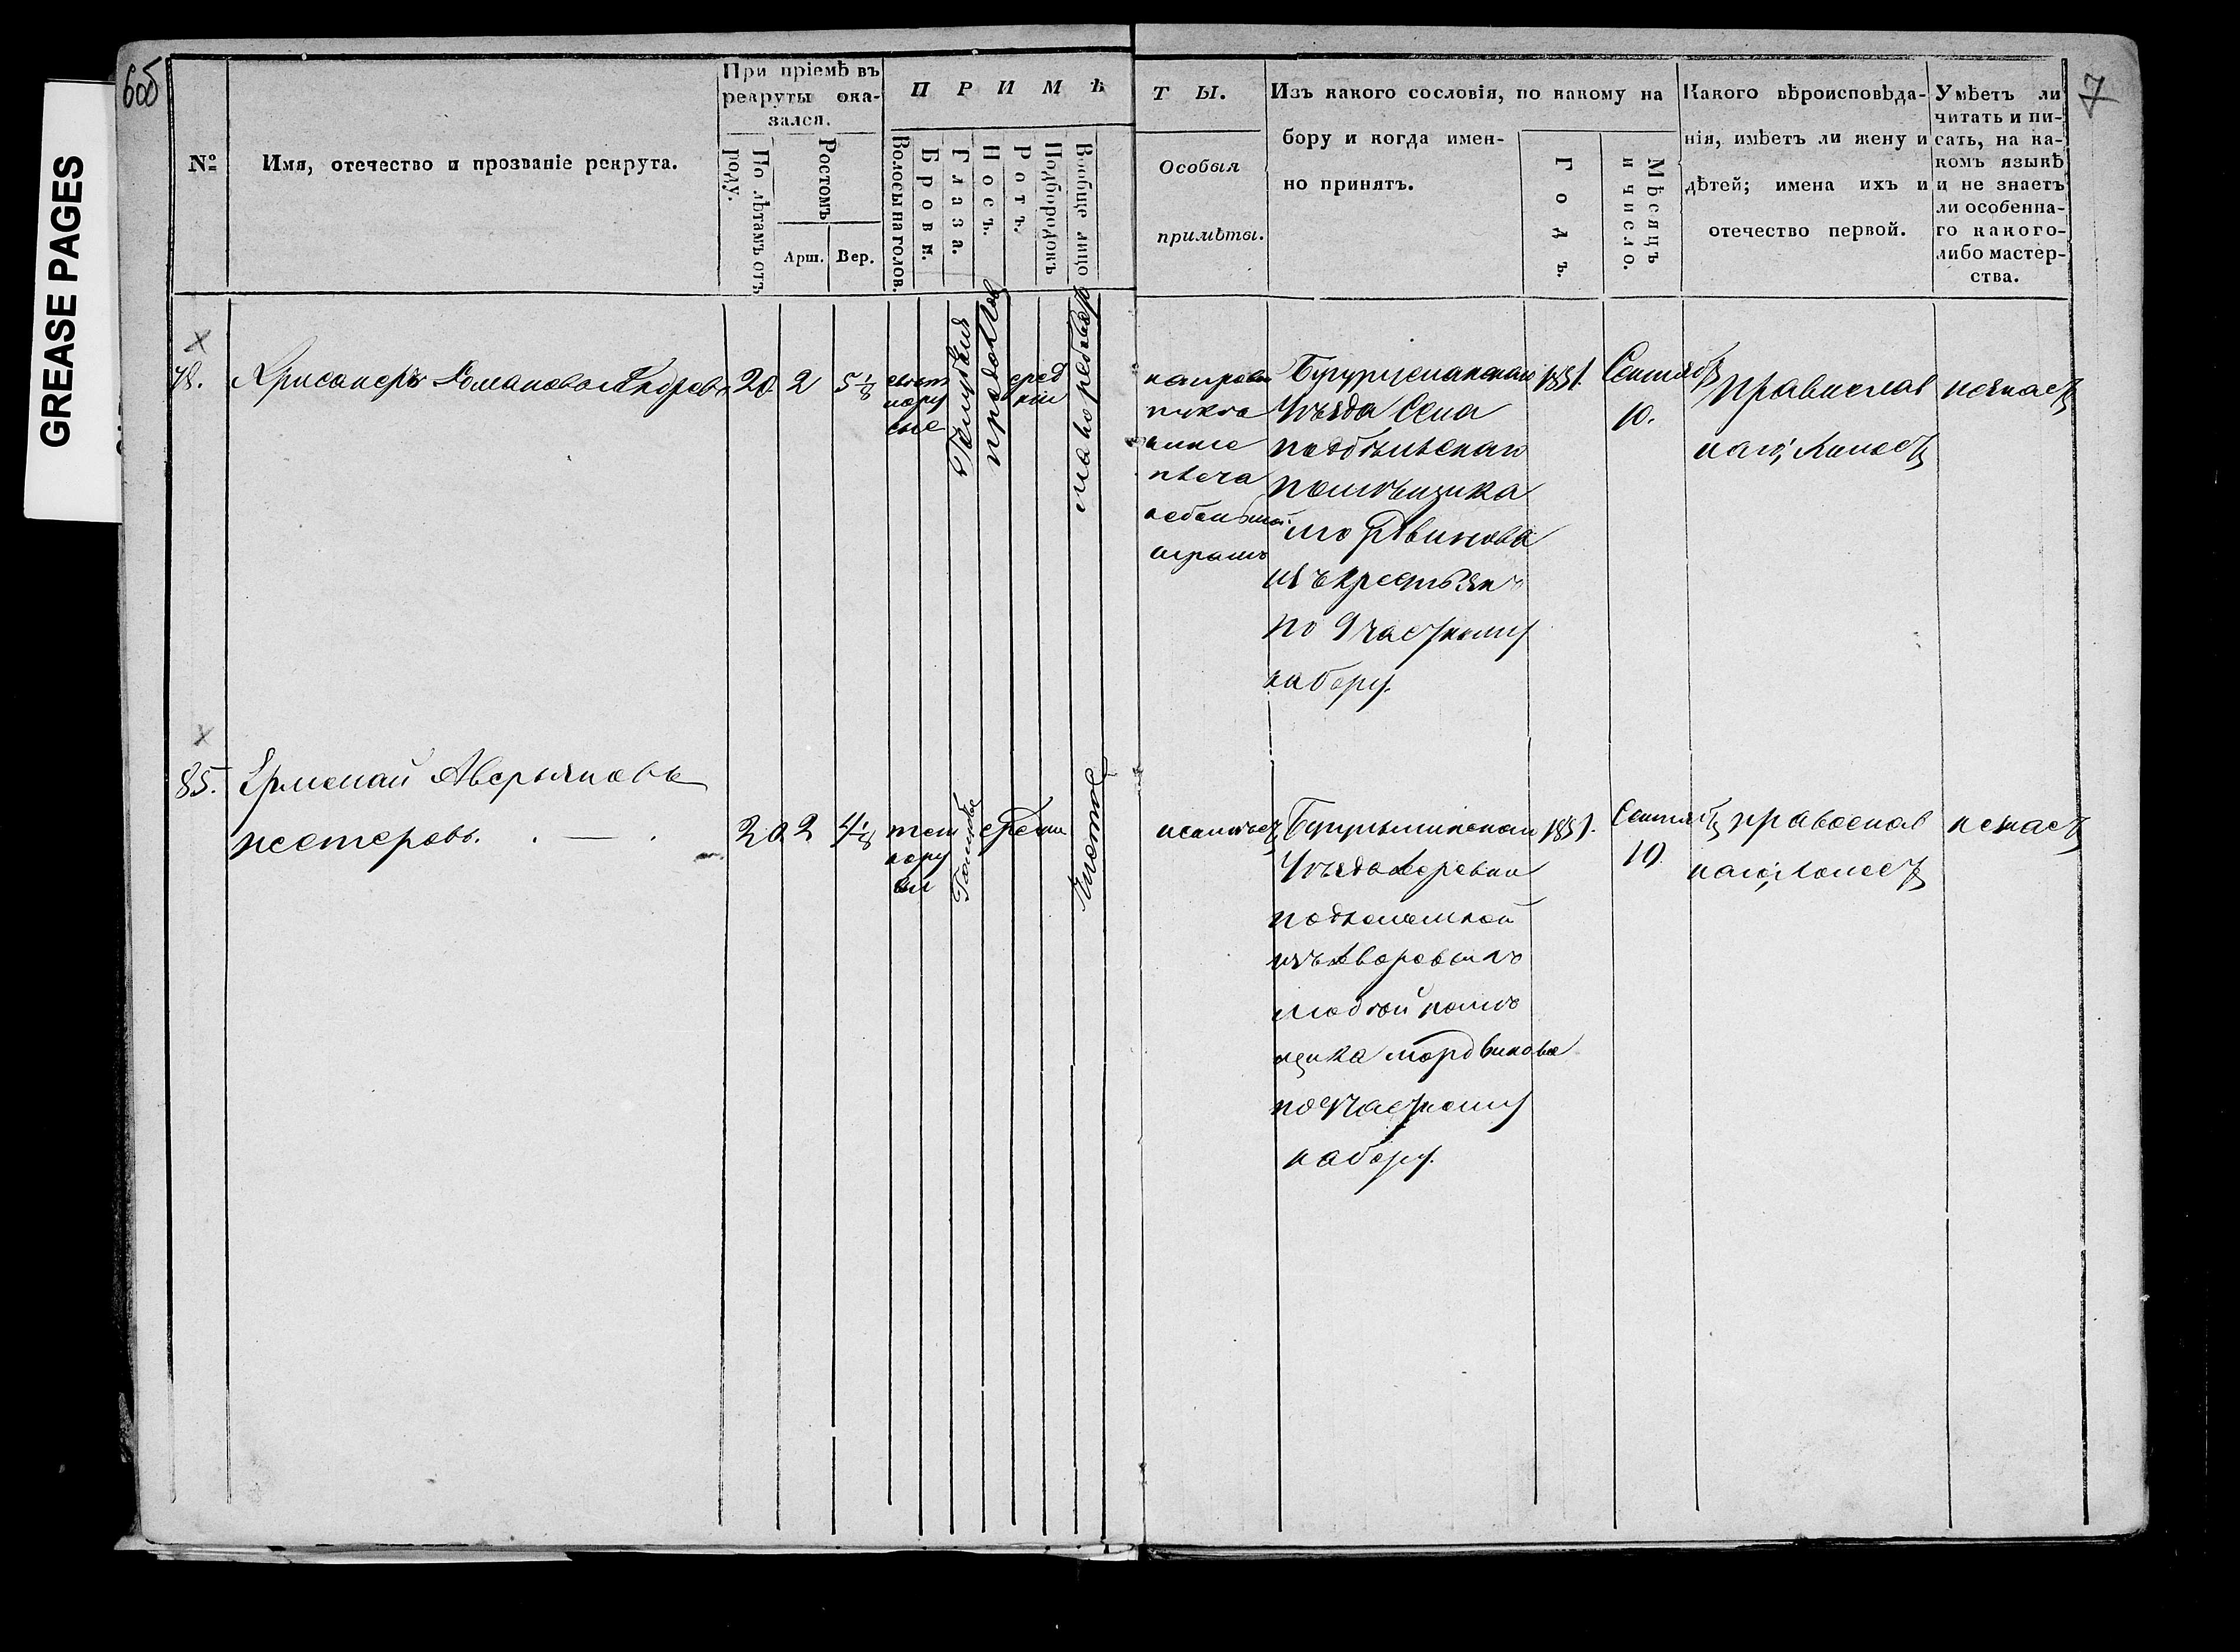 GREASE PAGES
6об
7
№
Имя, отечество и прозваніе рекрута.
При пріемѣ въ
рекруты ока-
зался.
По лѣтамъ отъ
роду.
Ростомъ
Арш.
Вер.
П Р И М Ѣ
Волосы на голов.
Брови.
Глаза.
Носъ.
Ротъ.
Подбородокъ
Вообще лицо
Т Ы.
Особыя
примѣты.
Изъ какого сословія, по какому на
бору и когда имен-
но принятъ.
Годъ.
Мѣсяцъ
и число.
Какого вѣроисповѣда-
нія, имѣетъ ли жену и
дѣтей; имена ихъ и
отечество первой.
Умѣетъ ли
читать и пи-
сать, на ка-
комъ языкѣ
и не знаетъ
ли особенна-
го какого-
либо мастер-
ства.
78.
Хрисанфъ Романовъ
20
2
5 1/8
светло
русые
Голубыя
сред
ніе
на правой
ниже
плеча
небольшой
шрамъ
Бугурусланскаго
Уѣзда Села
помѣщика
Мордвинова
изъ крестьянъ
по 9 частному
набору.
1851.
Сентяб
10.
православ
наго, холостъ
незнаетъ
85.
Ермолай Аверьяновъ
нестеровъ. . — .
20
2
4 1/8
темно
русы
Голубые
средни
Чистое
неимѣетъ
Бугурусланскаго
Уѣзда деревни
изъ дворовыхъ
людей помѣ
щика Мордвинова
по 9 частному
набору.
1851.
Сентяб
10
православ
наго, холостъ
незнаетъ